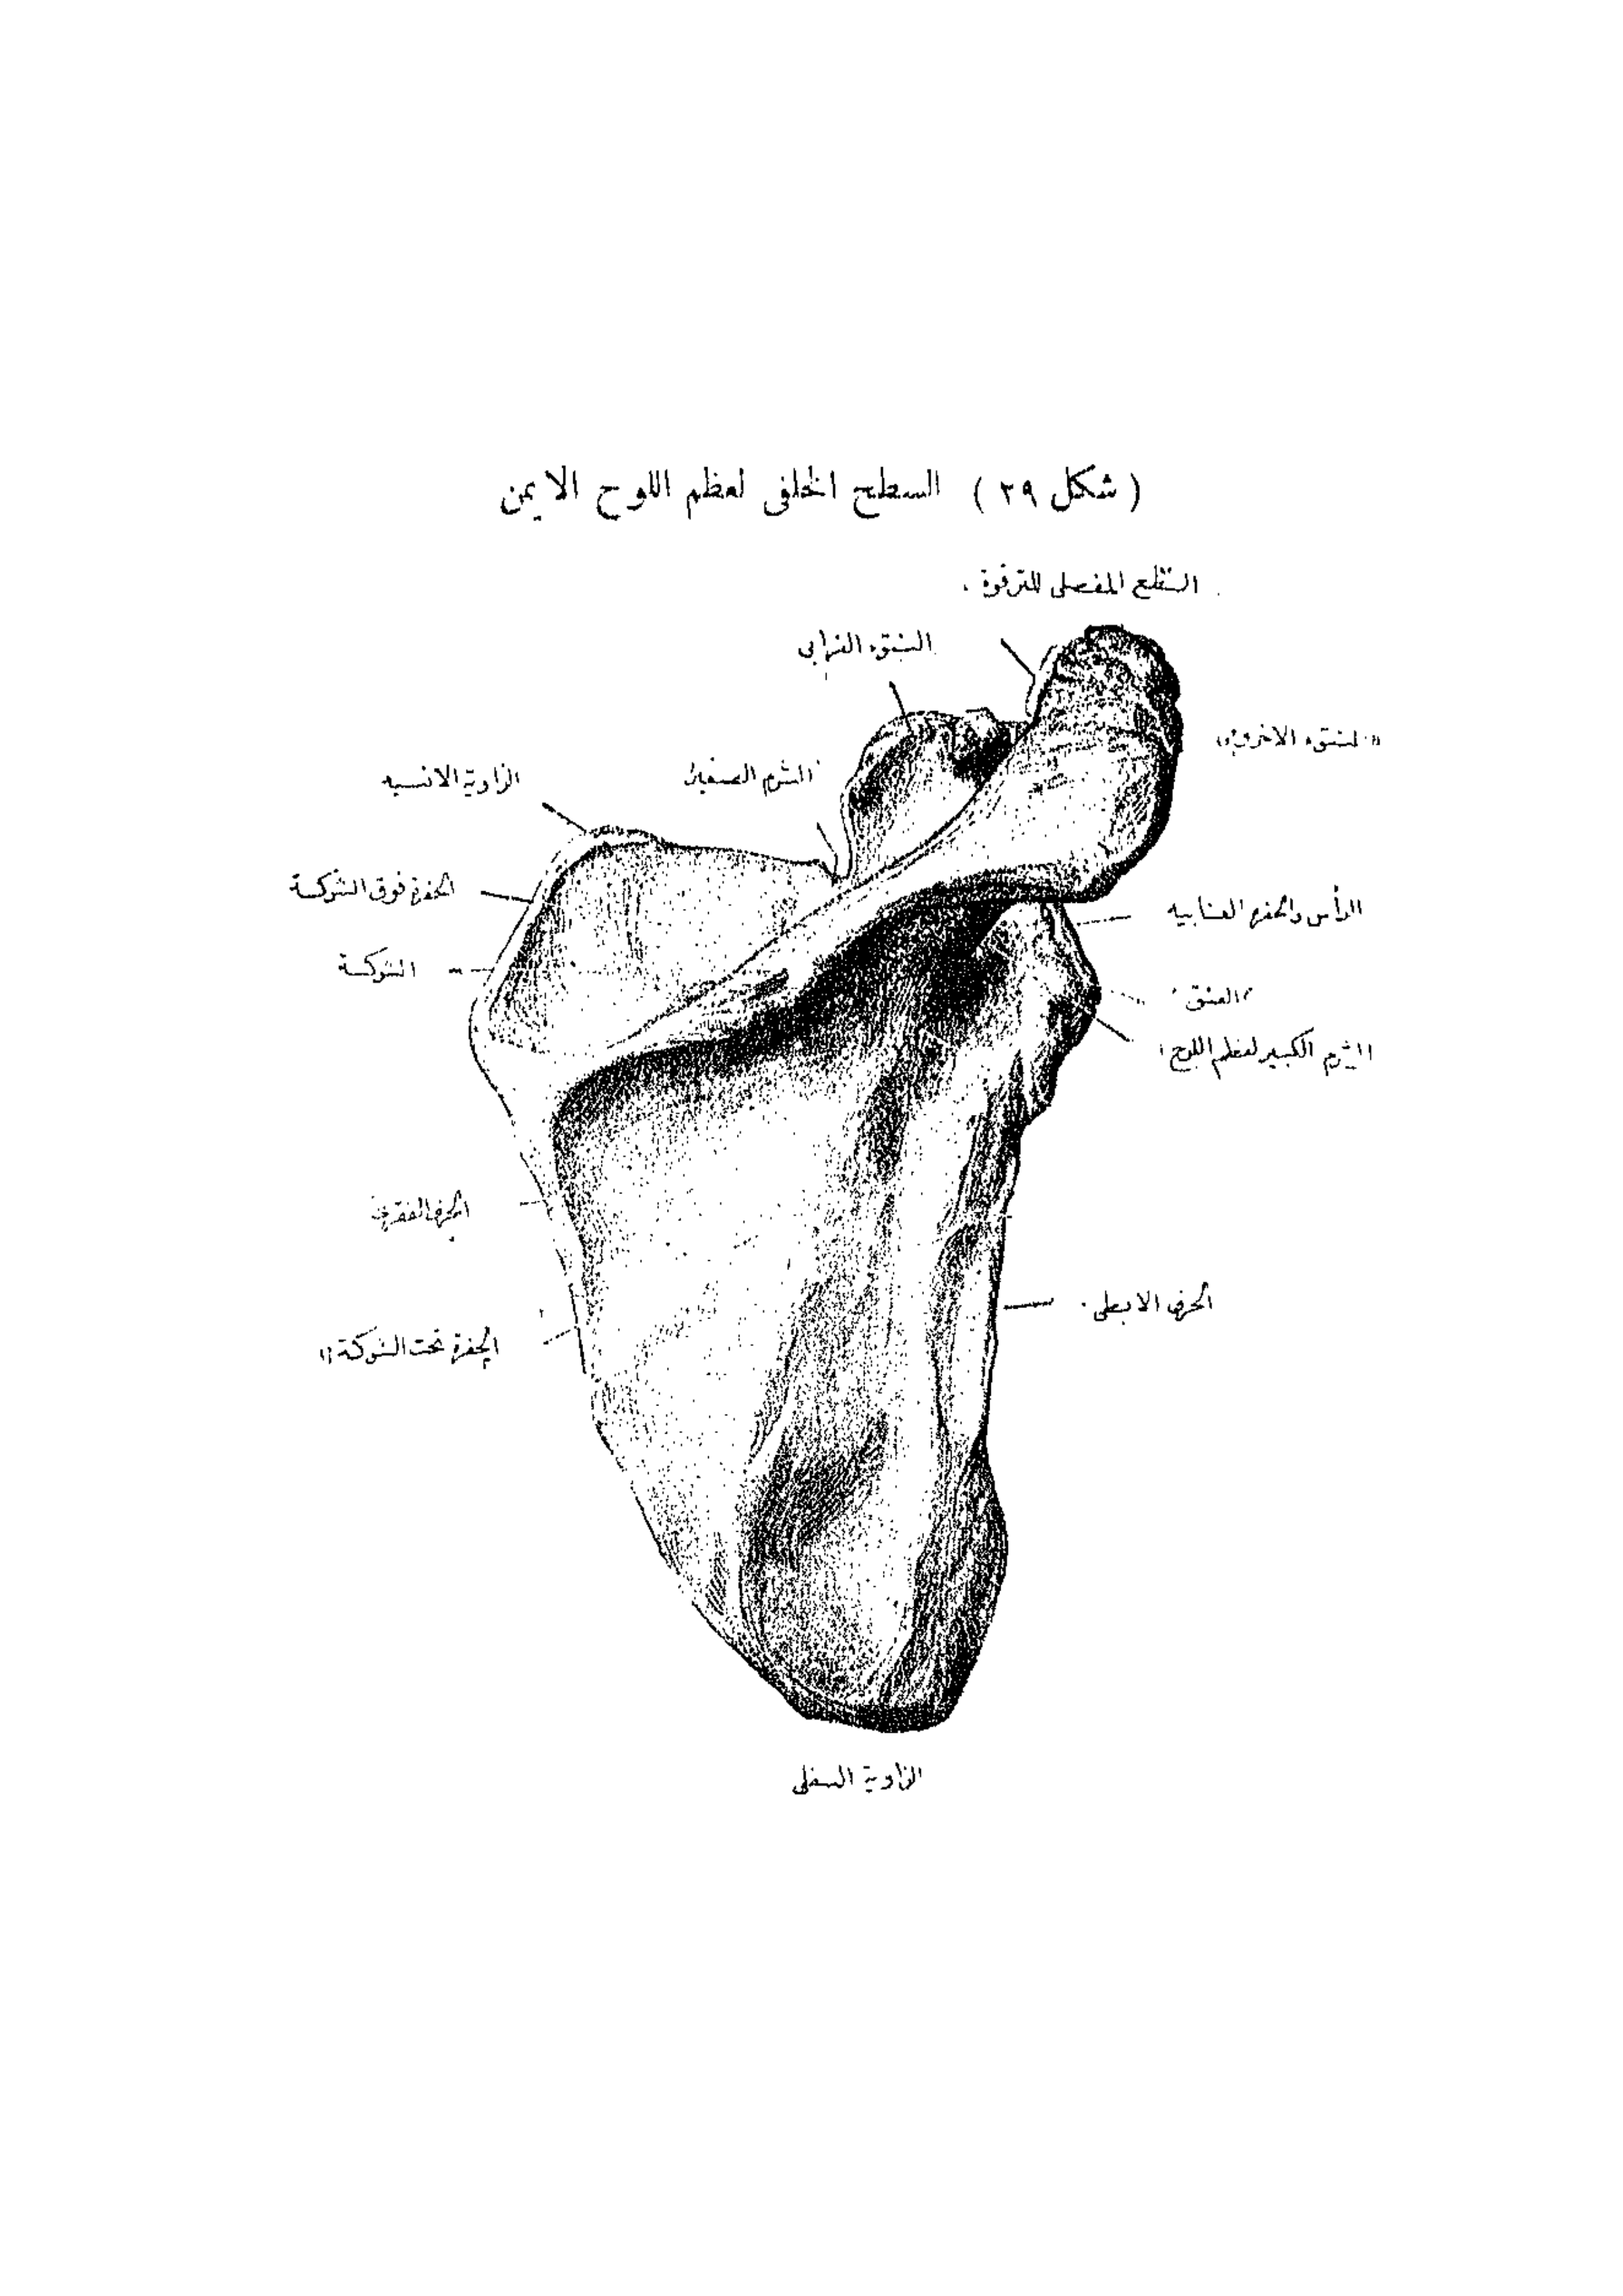 ( شكل ٣٩ ) السطح الخلفى لعظم اللوح الايمن
السطح المفصلى للترقوة
النتوء الغرابى
النتوء الاخرومى
الثرم الصغير
الزاوية الانسيه
الحفرة فوق الشوكة
الرأس والحفره العنابيه
الشوكة
العنق
الثرم الكبير لعظم اللوح
الحرف الفقرى
الحرف الابطى
الحفرة تحت الشوكة
الزاوية السفلى